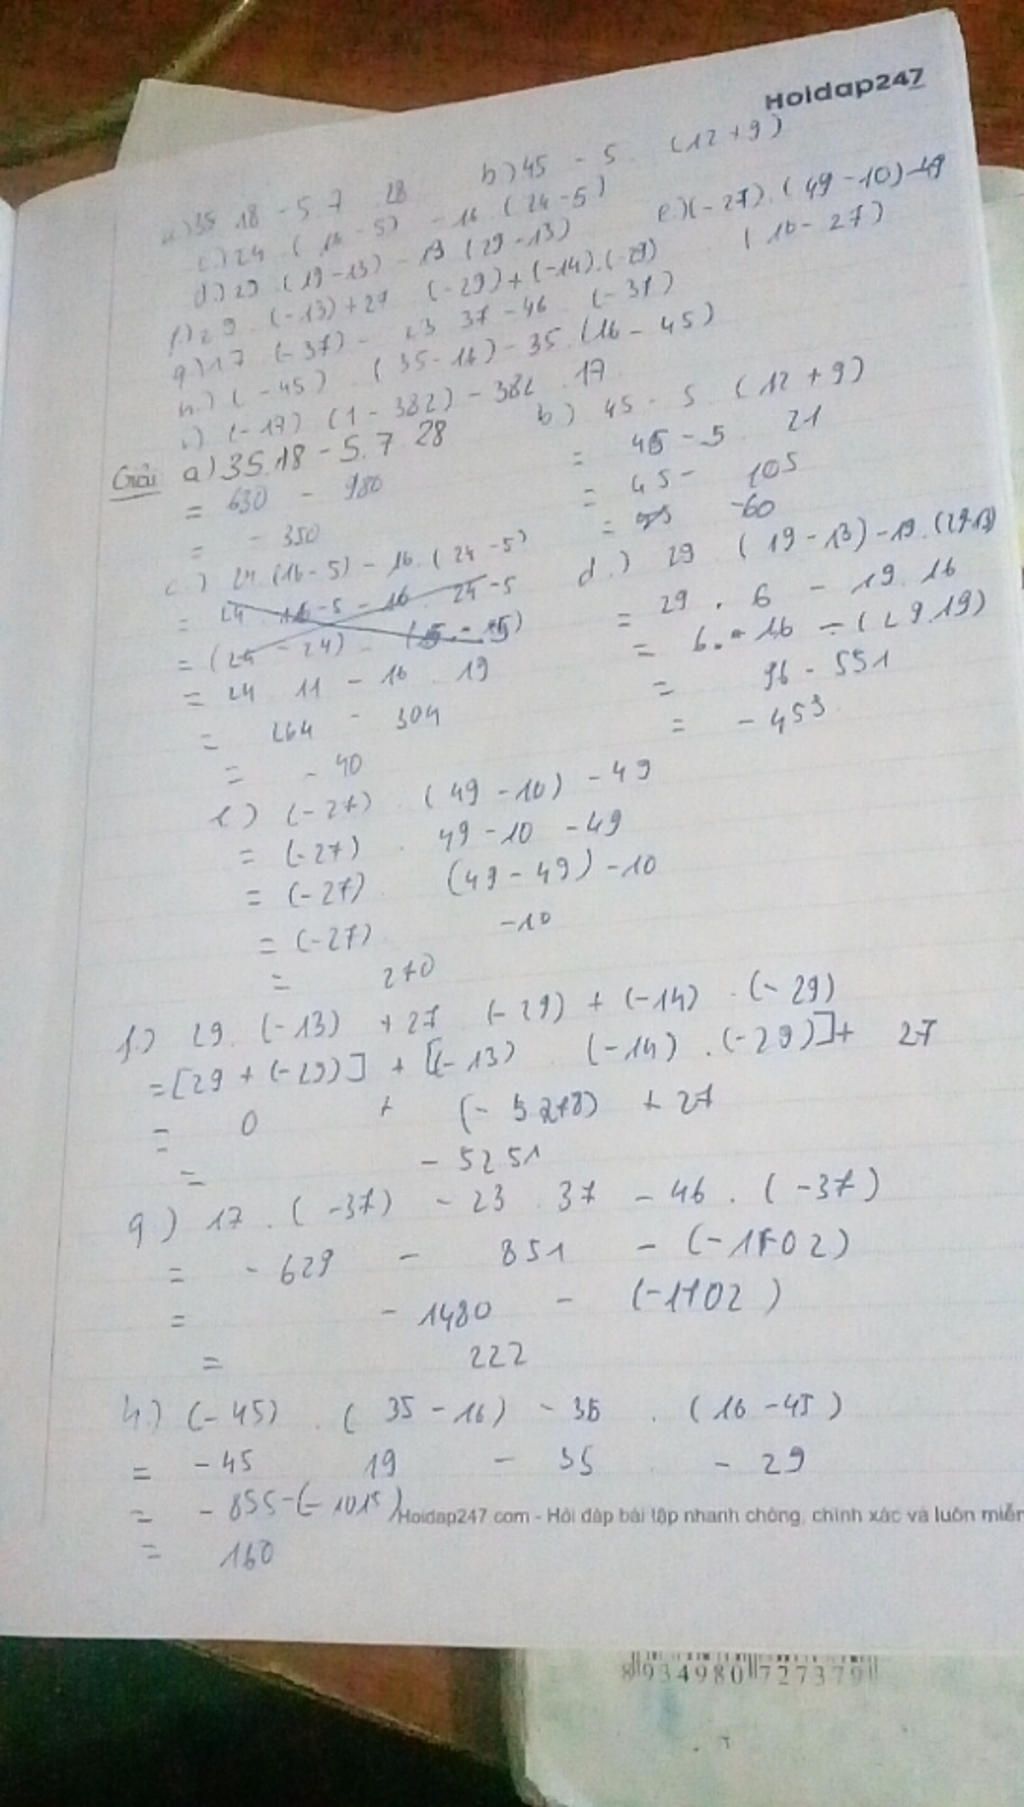 Hoidap247
a) 35 18 - 5 7 28 b) 45 - 5 (12 + 9)
c.) 24 . (16 - 5) - 16 . (24 - 5)
d.) 29 . (19 - 13) - 19 (29 - 13) e.) (- 27) . (49 - 10) - 49
(16 - 27)
f.) 29 . (- 13) + 27 (- 29) + (- 14) . (- 29)
g) 17 (- 37) - 23 37 - 46 (- 37)
h.) (- 45) . (35 - 16) - 35 . (16 - 45)
i) (- 17) (1 - 382) - 382 . 17
Giải a) 35.18 - 5.7 28 b) 45 - 5 (12 + 9)
= 630 - 980 = 45 - 5 21
= - 350 = 45 - 105
= -60
c) 24 . (16 - 5) - 16 . (24 - 5) d.) 29 . (19 - 13) - 19 . (29-13)
= 24 . 16 - 5 - 16 . 24 - 5 = 29 . 6 - 19 . 16
= (24 - 24) - (5 - 5) = 6 . 16 - (29.19)
= 24 11 - 16 . 19 = 96 - 551
= 264 - 304 = - 453
= - 40
e) (- 27) . (49 - 10) - 49
= (- 27) . 49 - 10 - 49
= (- 27) . (49 - 49) - 10
= (- 27) - 10
= 270
f.) 29 . (- 13) + 27 (- 29) + (- 14) . (- 29)
= [29 + (- 29)] + [(- 13) . (- 14) . (- 29)] + 27
= 0 + (- 5278) + 27
= - 5251
g) 17 . (- 37) - 23 . 37 - 46 . (- 37)
= - 629 - 851 - (- 1702)
= - 1480 - (- 1702)
= 222
h.) (- 45) . (35 - 16) - 35 . (16 - 45)
= - 45 19 - 35 . - 29
= - 855 - (- 1015)
Hoidap247 com - Hỏi đáp bài tập nhanh chóng, chính xác và luôn miễn
= 160
8 934980 727379